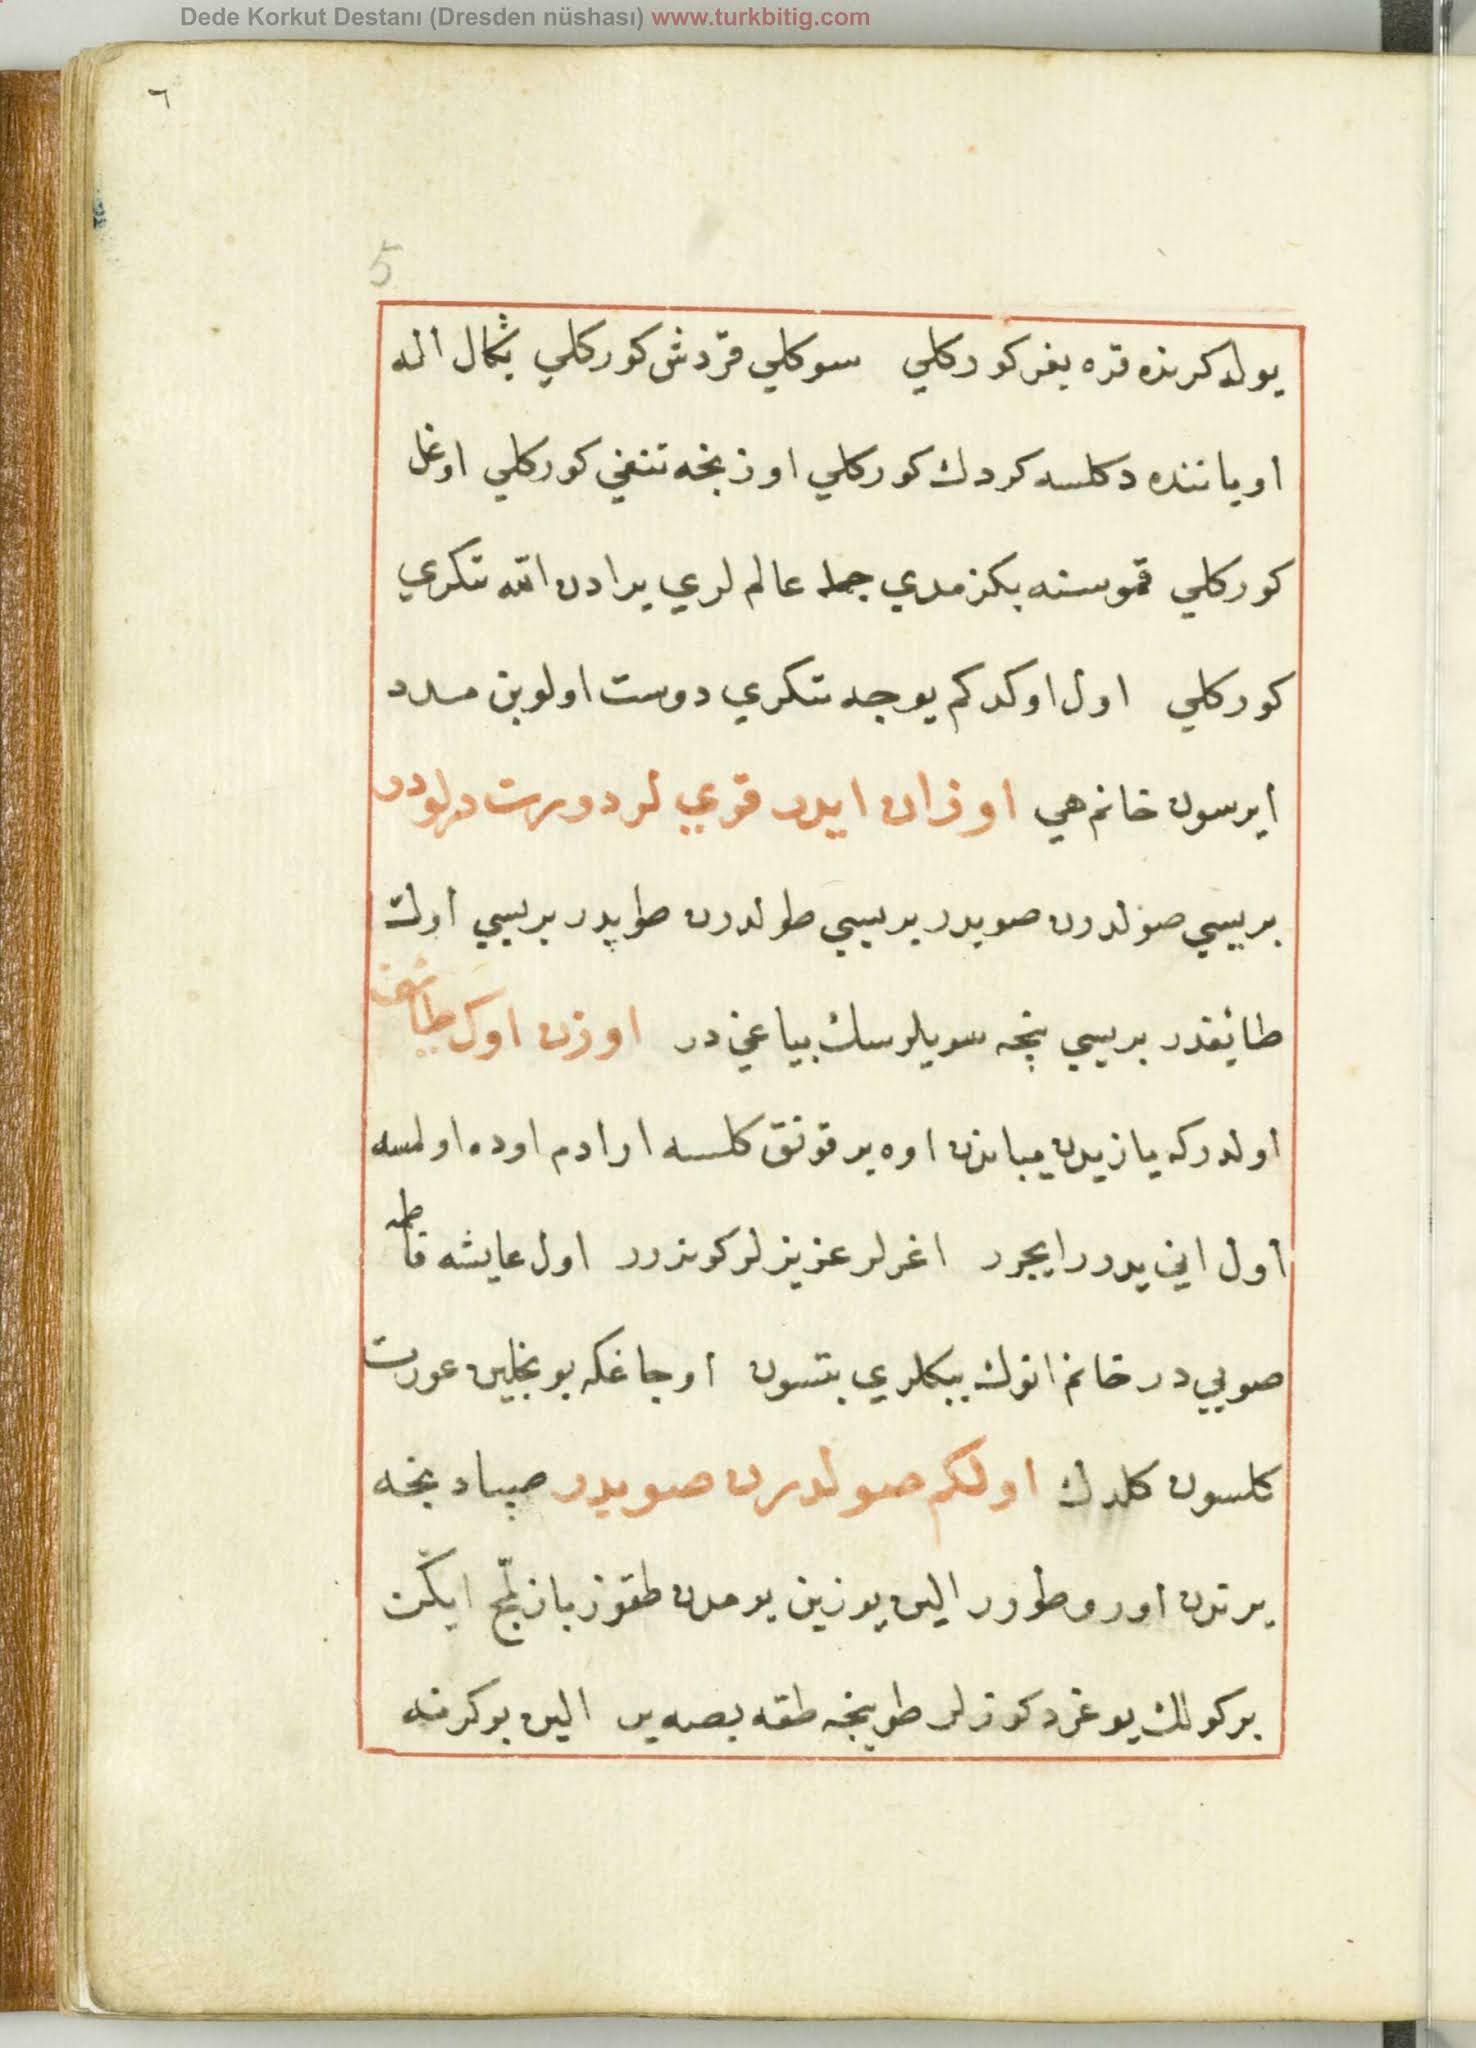 Dede Korkut Destanı (Dresden nüshası) www.turkbitig.com
٦
5
يولد كرنده قره بغر كوركلي سوكلي قرّدش كوركلي يكمال اله
اوياننده دكلسه كردك كوركلي اوزنجه تنغي كوركلي اوغل
كوركلي قموسنه بكزمدي جمله عالم لري يرادن الله تنكري
كوركلي اول اوكدكم يوجه تنكري دوست اولوبن مدد
ايرسون خانم هي اوزان ايدر قري لر دورت درلودر
بريسي صولدرن صويدر بريسي طولدرن طوپدر بريسي اوك
طايغدر بريسي نيجه سويلرسك بياغي در اوزن اوك طايغي
اولدركه يازيدن يباندن اوه بر قونق كلسه ار ادم اوده اولمسه
اول اني يدرر ايچرر اغرلر عزيزلر كوندرر اول عايشه فاطمه
صويي در خانم انوك ببكلري بتسون اوجاغكه بونجلين عورت
كلسون كلدك اولكم صولدرن صويدر صباد نجه
يرندن اورو طورر الين يوزين يومدن طقوز بازلمج ايلن
بر كولك يوغرد كوزلر طوينجه طقه بصه ير الين بوكرنه